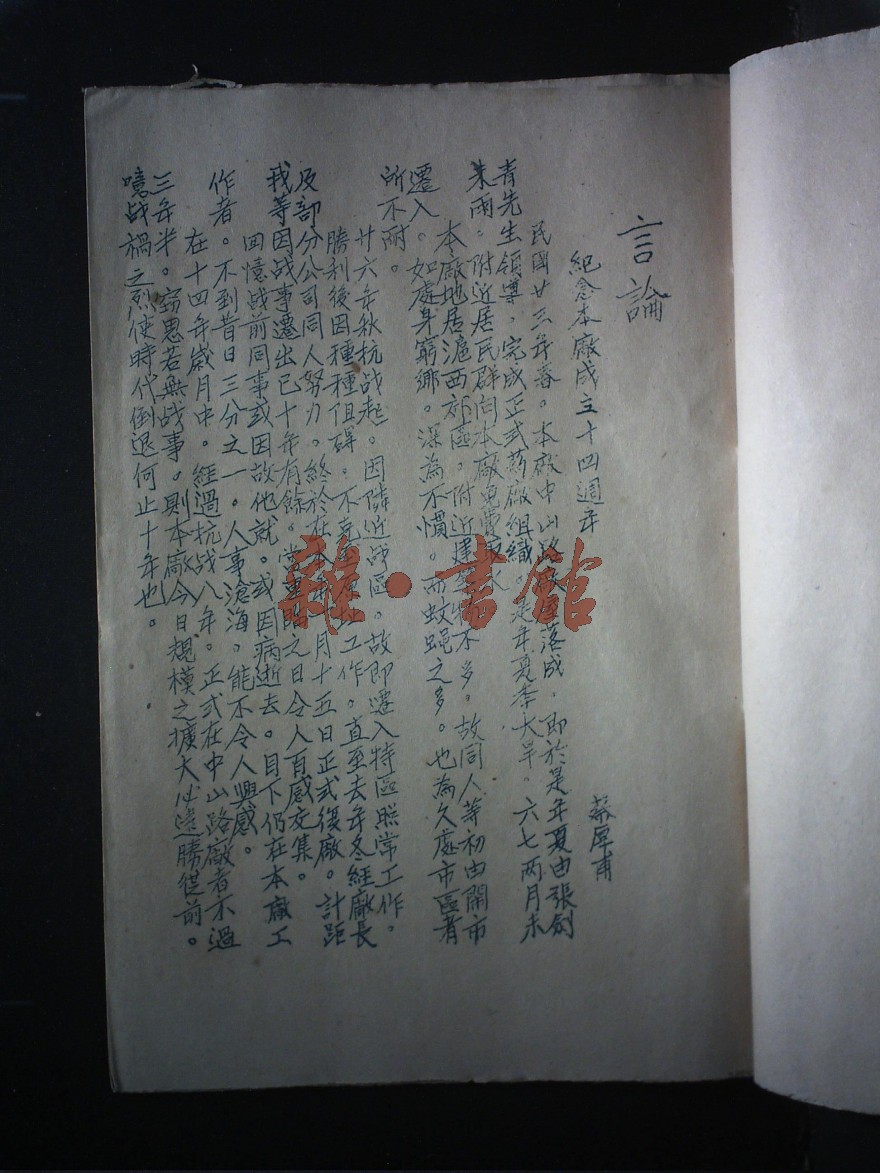 言論
紀念本廠成立十四週年
蔡厚甫
民國廿三年春。本廠中山路落成,即於是年夏由張劍
青先生領導,完成正式葯廠組織。是年夏季大旱。六七兩月未
来雨。附近居民群向本廠水
本廠地居滬西郊區。附近建築物不多。故同人等初由閙市
遷入。如處身窮鄉。深為不慣。而蚊蝇之多。也為久處市區者
所不耐。
廿六年秋抗战起。因隣近战區。故即遷入特區照常工作。
勝利後因種種阻碍。不克工作。直至去年冬經廠長
及部分公司同人努力。終於在月十五日正式復廠。計距
我等因战事遷出已十年有餘。之日令人百感交集。
回憶战前同事或因故他就。或因病逝去。目下仍在本廠工
作者。不到昔日三分之一。人事滄海,能不令人興感。
在十四年歲月中。經過抗战八年。正式在中山路廠者不過
三年半。窃思若無战事。則本廠今日規模之擴大必遠勝從前。
噫战禍之烈使時代倒退何止十年也。
雜·書館